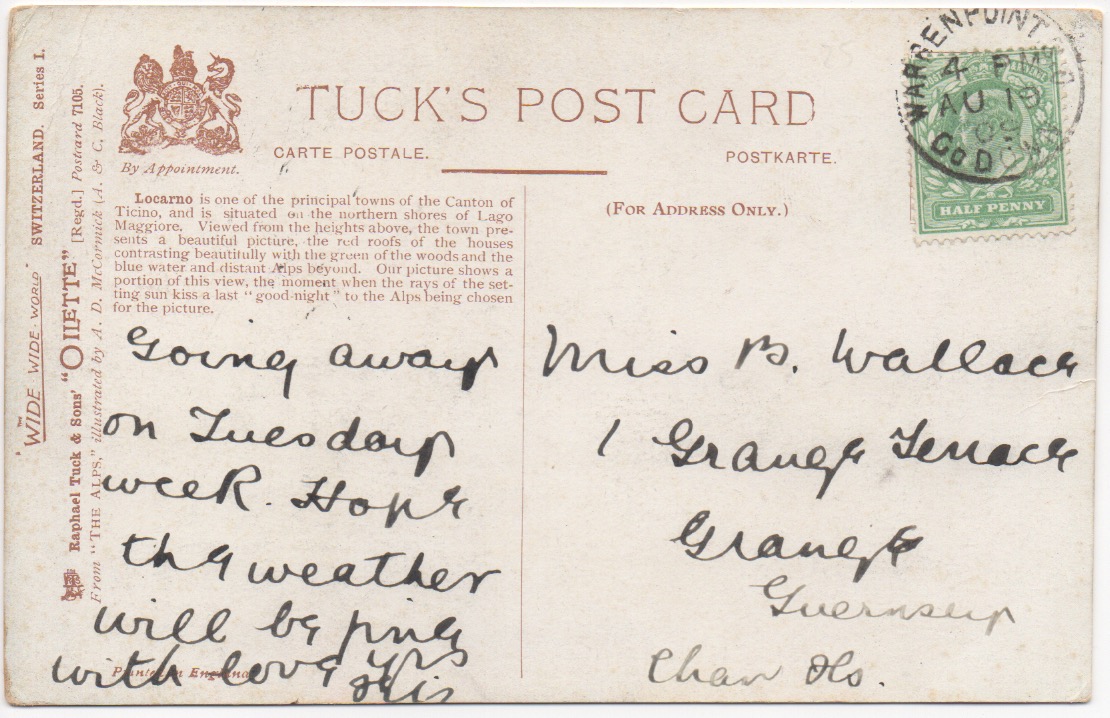 THE
"WIDE-WIDE-WORLD" SWITZERLAND. Series I.
Raphael Tuck & Sons' "OILETTE" [Regd.] Postcard 7105.
From "THE ALPS," illustrated by A. D. McCormick (A. & C. Black).
By Appointment.
TUCK'S POST CARD
CARTE POSTALE.
POSTKARTE.
Locarno is one of the principal towns of the Canton of
Ticino, and is situated on the northern shores of Lago
Maggiore. Viewed from the heights above, the town pre-
sents a beautiful picture, the red roofs of the houses
contrasting beautifully with the green of the woods and the
blue water and distant Alps beyond. Our picture shows a
portion of this view, the moment when the rays of the set-
ting sun kiss a last "good-night" to the Alps being chosen
for the picture.
Going away
on Tuesday
week. Hope
the weather
will be fine
with love Yrs
Printed in England
(FOR ADDRESS ONLY.)
WARRENPOINT
4 PM
AU 19
Co DOWN
HALF PENNY
Miss B. Wallace
1 Grange Terrace
Grange
Guernsey
Chan Is.